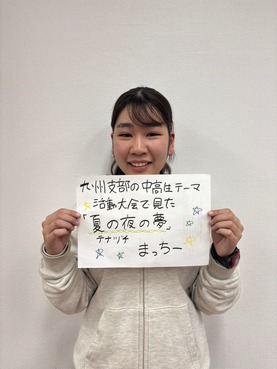 九州支部の中高生テーマ
活動大会で見た
「夏の夜の夢」
テナヅチ
まっちー